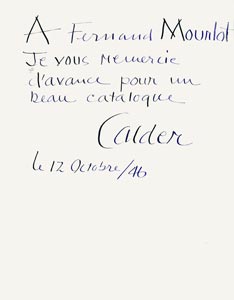 A Fernand Mourlot
Je vous remercie
d'avance pour un
beau catalogue
Calder
le 12 Octobre/46